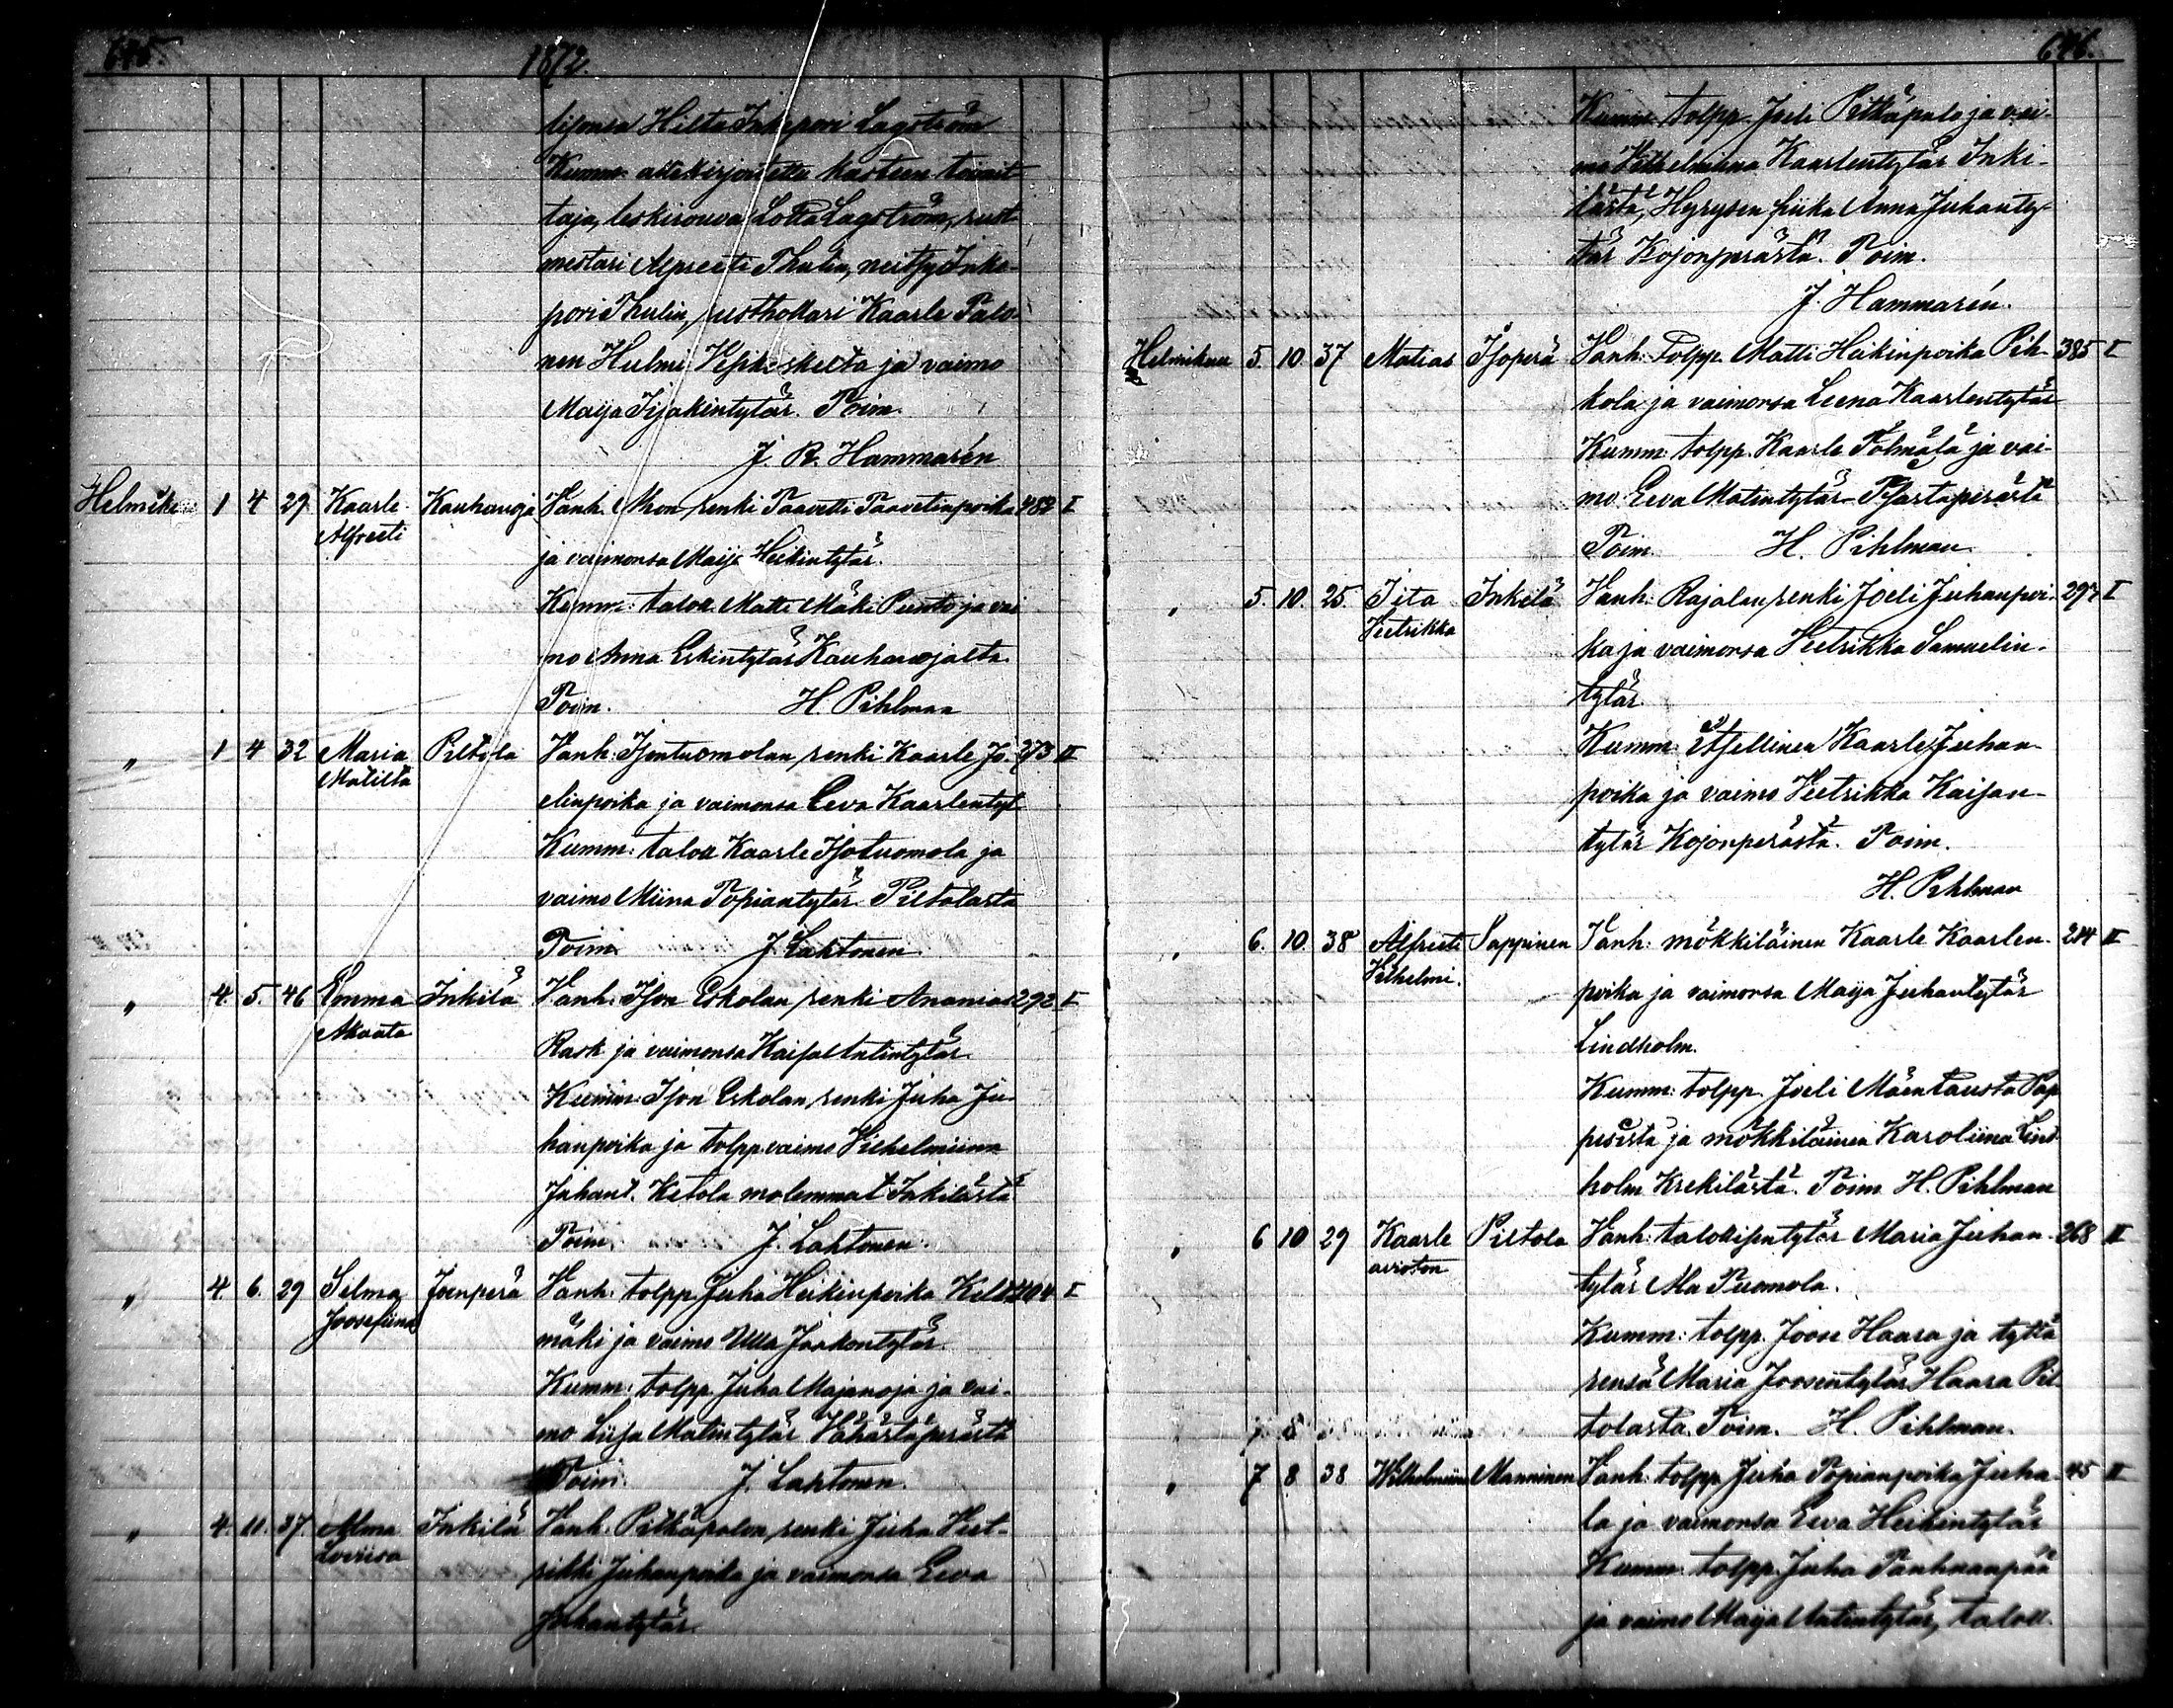 645.
1872.
Hilta Lagström
Kumm: allekirjoitettu kasteen toimit-
taja, leskirouva Lotta Lagström, rust-
mestari Thulin, neitsy Inke-
pori Thulin, rusthollari Kaarle Palo-
nen ja vaimo
Maija Iisakintytär. Toim.
J. R. Hammarén
Helmik. 1 4 29 Kaarle Kauhanoja Vanh. renki Taavetti Taavetinpoika 482 I
Alfreeti ja vaimonsa Maija Heikintytär.
Kumm: talok. Matti Mäki Punto ja vai
mo Anna Eskintytär Kauhanojalta.
Toim. H. Pihlman
„ 1 4 32 Maria Piltola Vanh: Isontuomolan renki Kaarle Jo- 273 II
Matilta elinpoika ja vaimonsa Eeva Kaarlentyt
Kumm: talon Kaarle Isotuomola ja
vaimo Miina Topiantytär Piltolasta
Toim. J. Lahtonen
„ 4. 5. 46 Emma Inkilä Vanh: Ison Eskolan renki Ananias 292 I
Akaata Rask ja vaimonsa Kaisa Antintytär.
Kumm: Ison Eskolan renki Juha Ju-
hanpoika ja tolpp. vaimo Vilhelmiina
Juhant. Ketola molemmat Inkilästä
Toim. J. Lahtonen.
„ 4. 6. 29 Selma Joenperä Vanh: tolpp. Juha Heikinpoika 204 I
Joosefiina mäki ja vaimo Ulla Jaakontytär.
Kumm: tolpp. Juha Majanoja ja vai-
mo Liisa Matintytär Vähästäperästä
Toim. J. Lahtonen.
„ 4. 11. 37 Alma Inkilä Vanh. Pitkäpalon renki Juha Veet-
Loviisa rikki Juhanpoika ja vaimonsa Eeva
Juhantytär.
646.
Kumm: tolpp. Joeli Pitkäpalo ja vai-
mo Vilhelmiina Kaarlentytär Inki-
lästä, Hyrysen piika Anna Juhanty-
tär Kojonperästä. Toim.
J. Hammarén.
Helmikuu 5. 10 37 Matias Isoperä Vanh: Tolpp. Matti Heikinpoika Pih- 385 I
kola ja vaimonsa Leena Kaarlentytär
Kumm: tolpp. Kaarle Tolmälä ja vai-
mo Eeva Matintytär Isostaperästä
Toim. H. Pihlman.
„ 5. 10. 25. Iita Inkilä Vanh: Rajalan renki Joeli Juhanpoi- 297 I
Veetrikka ka ja vaimonsa Veetrikka Samuelin-
tytär.
Kumm: itsellinen Kaarle Juhan-
poika ja vaimo Veetrikka Kaisan-
tytär Kojonperästä. Toim.
H. Pihlman
„ 6. 10. 38 Alfreeti Pappinen Vanh: mökkiläinen Kaarle Kaarlen- 214 II
Vilhelmi. poika ja vaimonsa Maija Juhantytär
Lindholm.
Kumm: tolpp. Joeli Mäentausta Pap
pisista ja mökkiläinen Karoliina Lind
holm Krekilästä. Toim H. Pihlman
„ 6 10 29 Kaarle Piltola Vanh: talollisentytär Maria Juhan- 268 II
avioton tytär Ala Tuomola.
Kumm: tolpp. Joose Haara ja tyttä
rensä Maria Joosentytär Haara Pil-
tolasta. Toim. H. Pihlman.
7 8
„ 7 8 38 Wilhelmiina Manninen Vanh: tolpp. Juha Topianpoika Juha- 45 II
la ja vaimonsa Eeva Heikintytär
Kumm: tolpp. Juha Tanhuanpää
ja vaimo Maija Antintytär, talol.